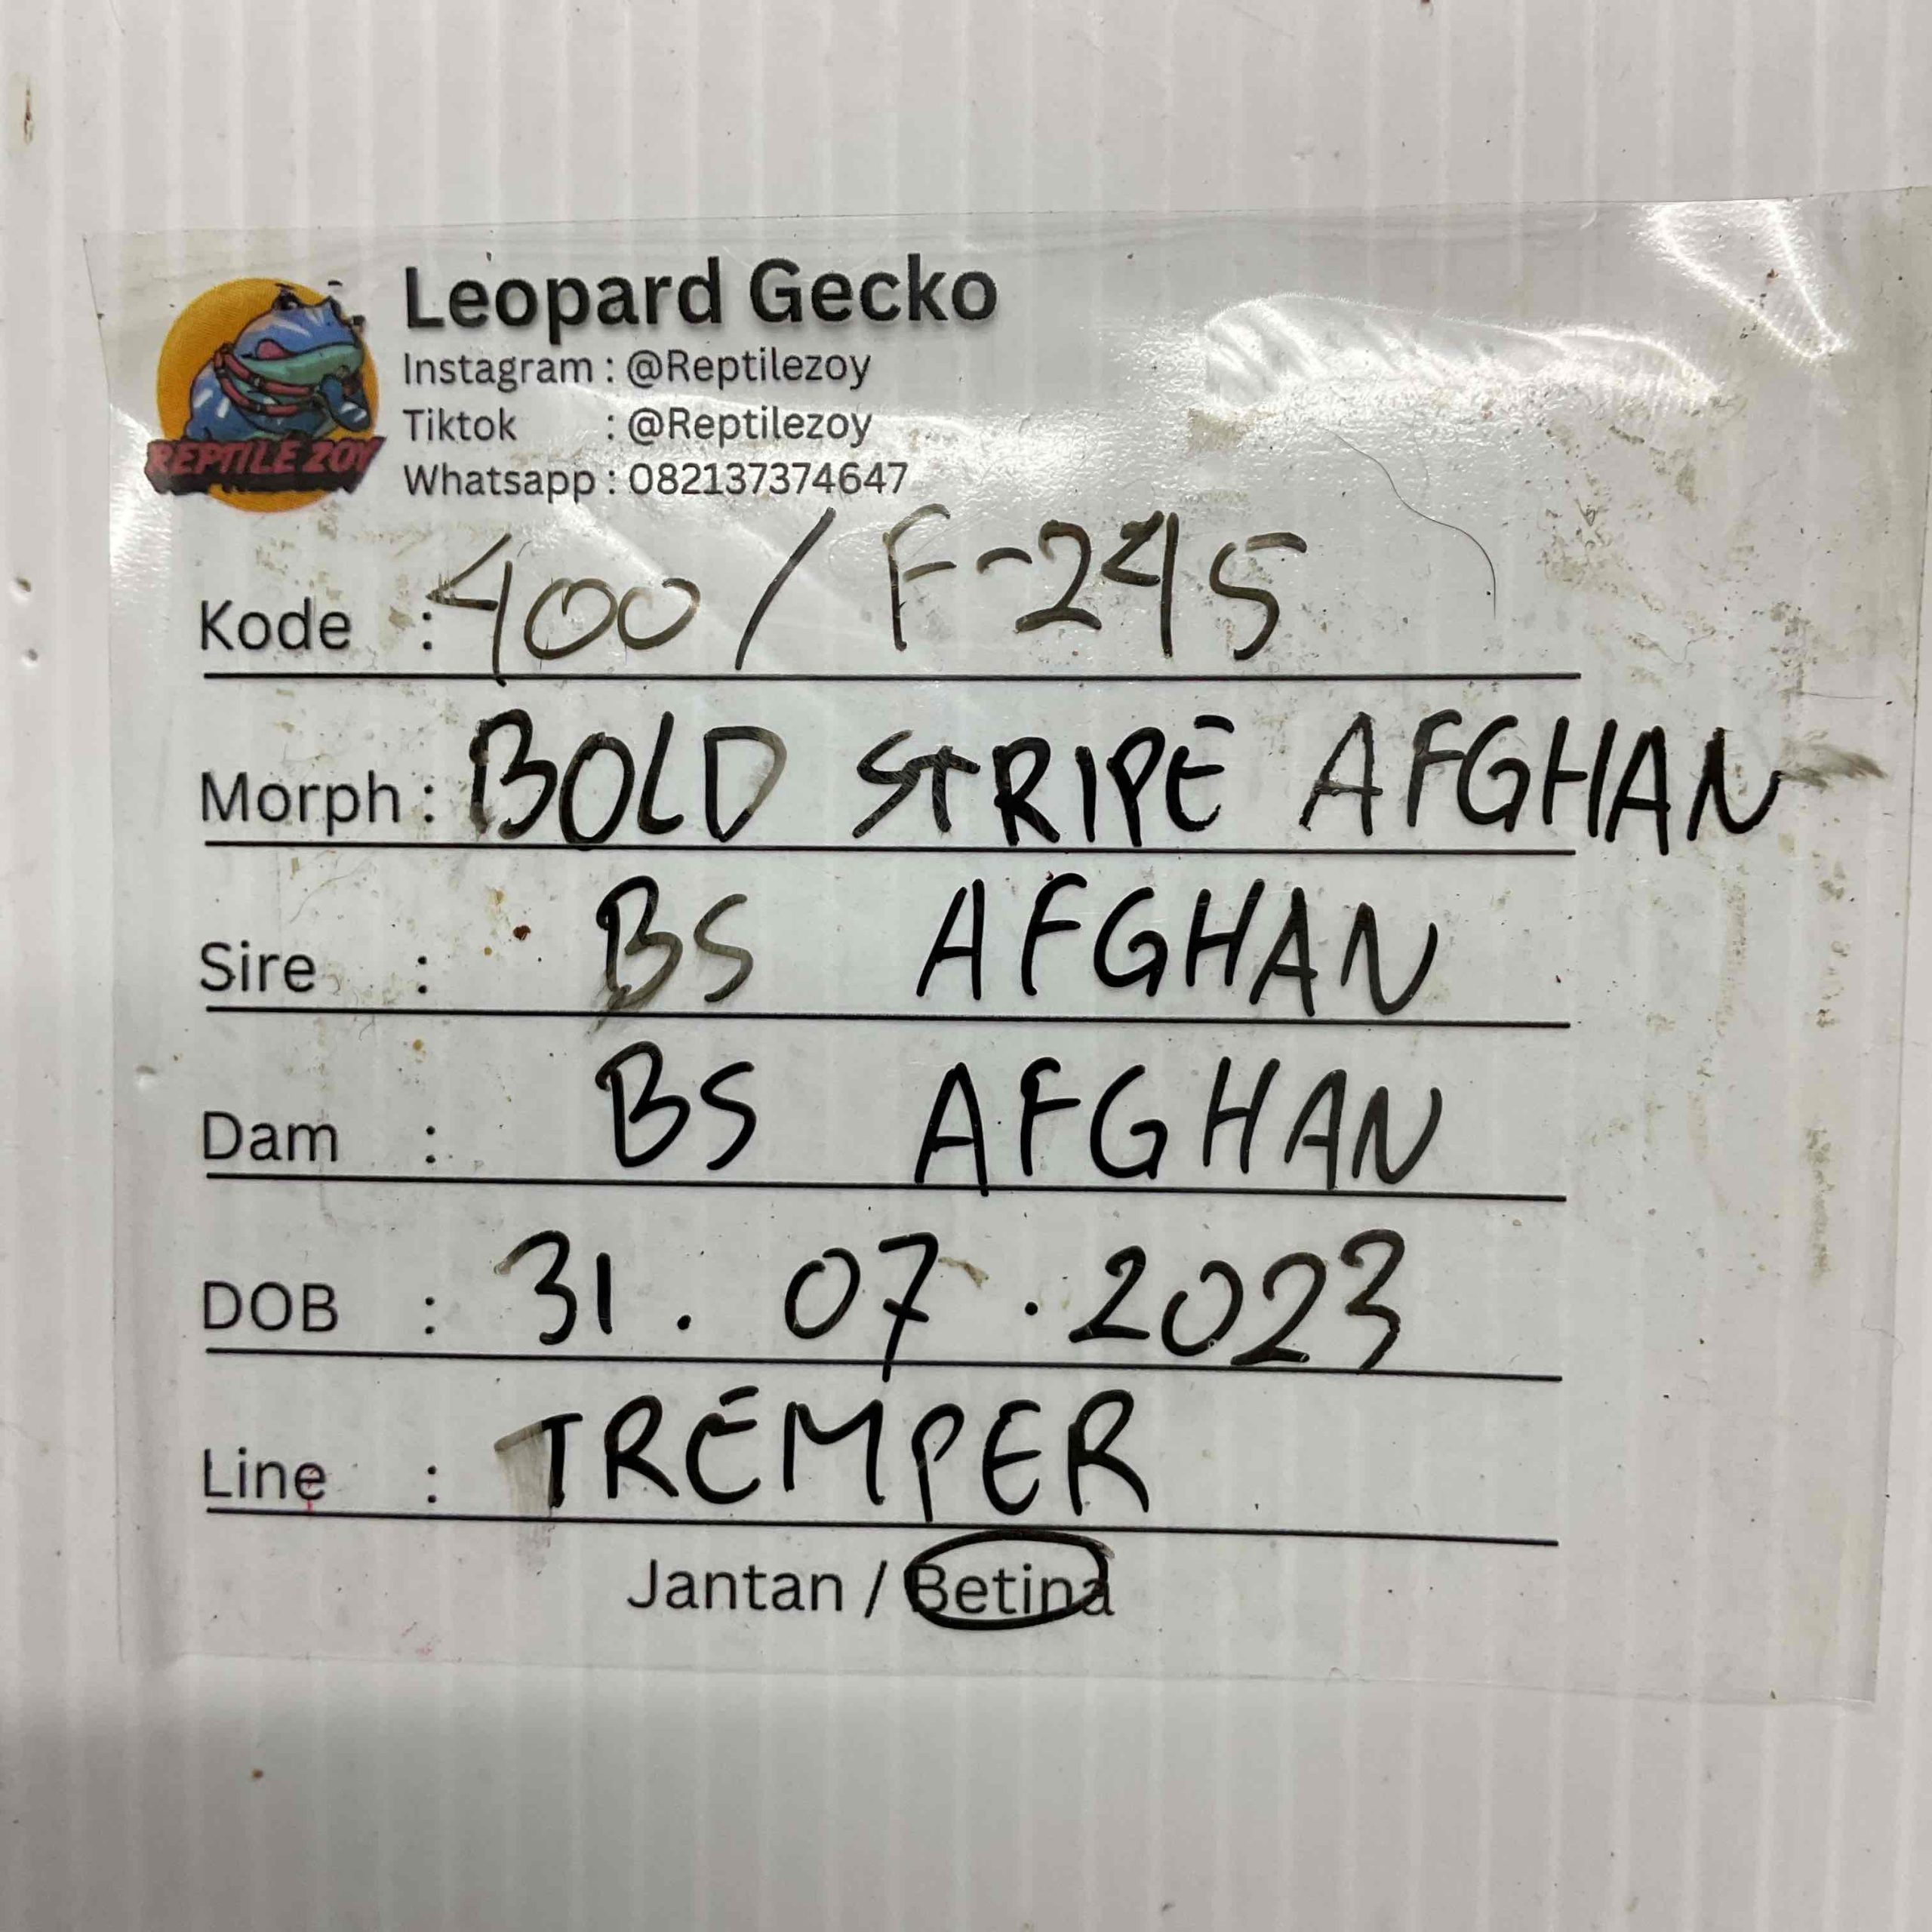 REPTILE ZOY
Leopard Gecko
Instagram : @Reptilezoy
Tiktok : @Reptilezoy
Whatsapp : 082137374647
Kode : 400 / F-245
Morph : BOLD STRIPE AFGHAN
Sire : BS AFGHAN
Dam : BS AFGHAN
DOB : 31.07.2023
Line : TREMPER
Jantan / Betina